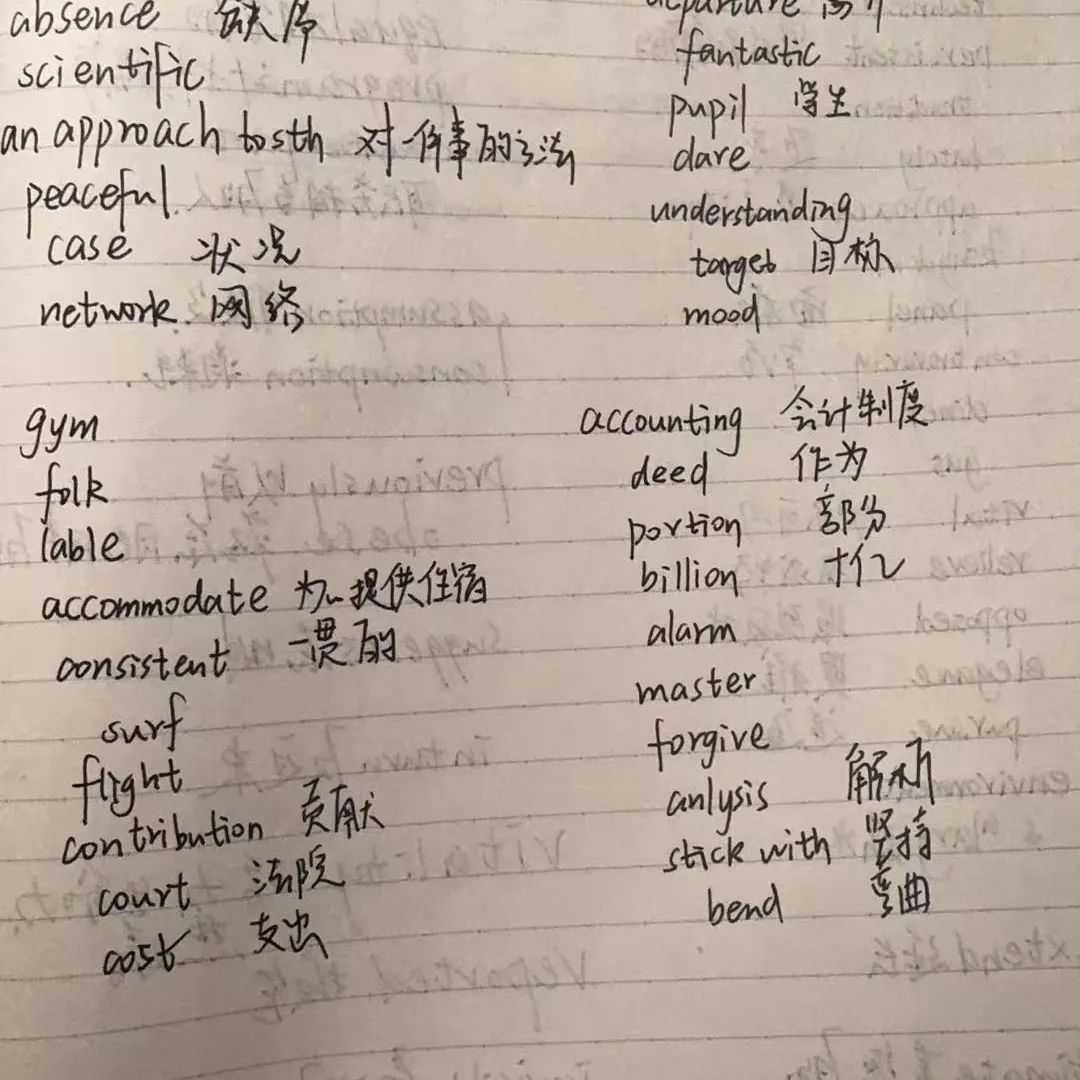 absence 缺席
scientific
an approach to sth 对一件事的方法
peaceful
case 状况
network 网络
gym
folk
lable
accommodate 为…提供住宿
consistent 一贯的
surf
flight
contribution 贡献
court 法院
cost 支出
departure 离开
fantastic
pupil 学生
dare
understanding
target 目标
mood
accounting 会计制度
deed 作为
portion 部份
billion 十亿
alarm
master
forgive
anlysis 解析
stick with 坚持
bend 弯曲